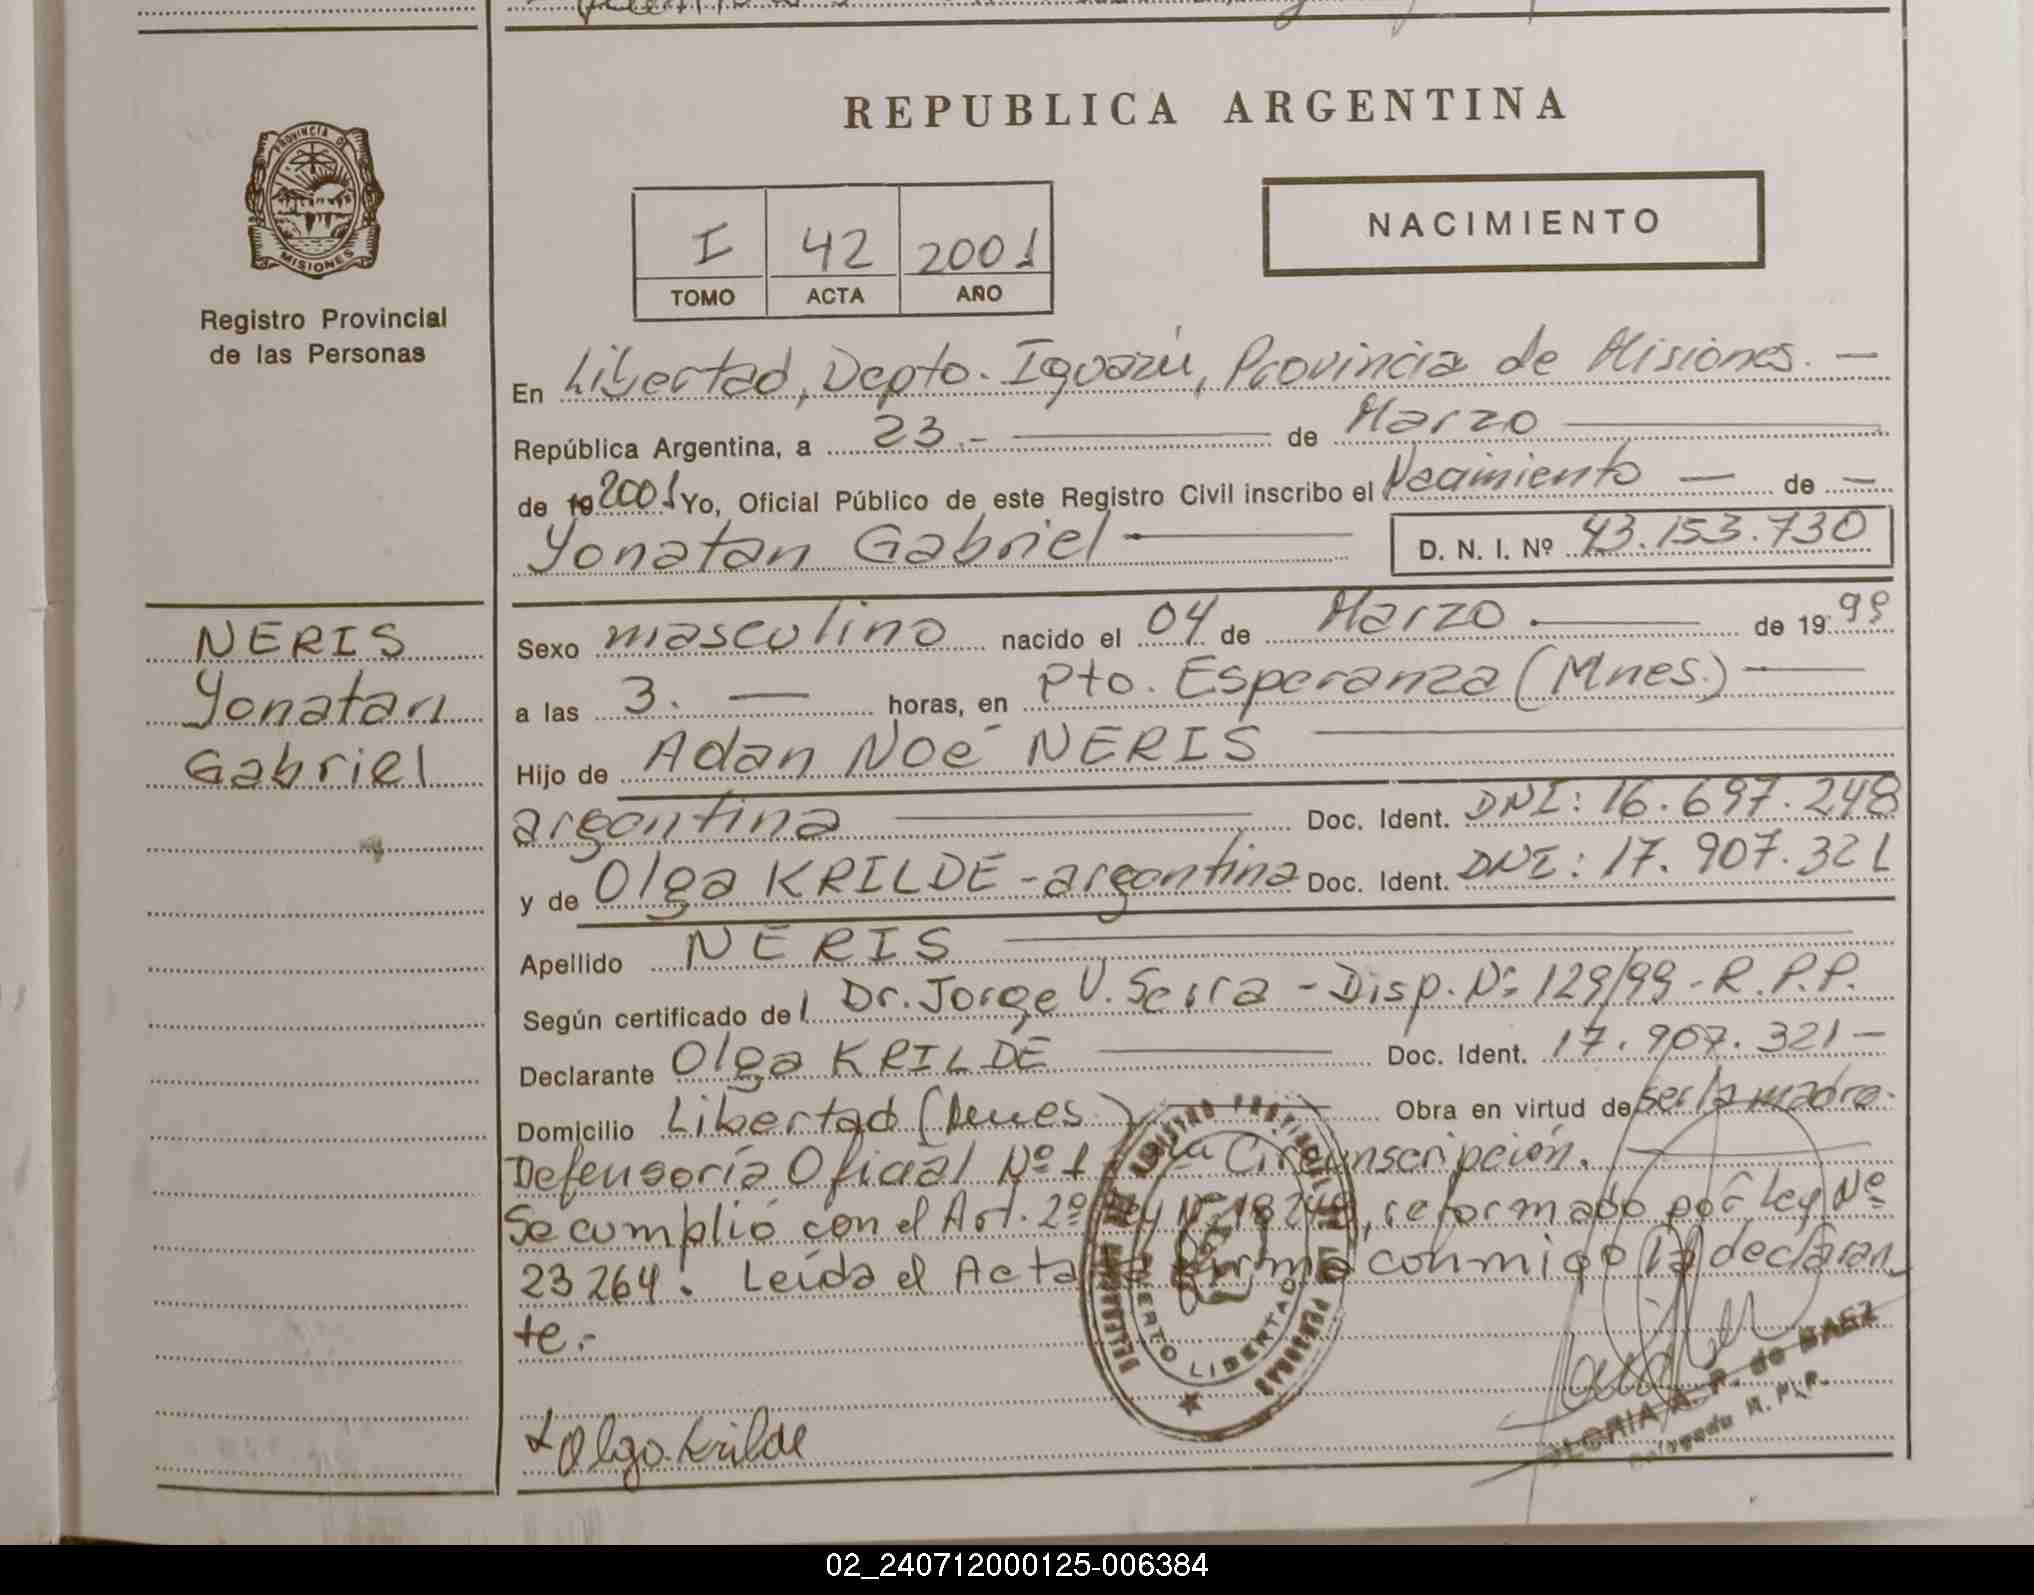 REPUBLICA ARGENTINA
PROVINCIA DE
MISIONES
Registro Provincial
de las Personas
NACIMIENTO
I 42 2001
TOMO ACTA AÑO
En Libertad, Depto. Iguazú, Provincia de Misiones. —
República Argentina, a 23.- — de Marzo —
de 19 2001 Yo, Oficial Público de este Registro Civil inscribo el Nacimiento — de —
Yonatan Gabriel — D. N. I. Nº 43.153.730
NERIS
Yonatan
Gabriel
Sexo masculino nacido el 04 de Marzo . — de 19 99
a las 3. — horas, en Pto. Esperanza (Mnes.) —
Hijo de Adan Noé NERIS —
argentina — Doc. Ident. DNI: 16.697.248
y de Olga KRILDE - argentina Doc. Ident. DNI: 17.907.321
Apellido NERIS —
Según certificado del Dr. Jorge V. Serra - Disp. Nº 129/99 - R.P.P.
Declarante Olga KRILDE — Doc. Ident. 17.907.321 —
Domicilio Libertad (Mnes.) — Obra en virtud de ser la madre.
Defensoría Oficial Nº 1 1ra Circunscripción. —
Se cumplió con el Art. 2º Ley Nº 18248, reformado por Ley Nº
23264. Leída el Acta la firma conmigo la declaran
te.-
Olga Krilde
REGISTRO PROVINCIAL DE LAS PERSONAS
PUERTO LIBERTAD
GLORIA A. R. de BAEZ
Delegada R. P. P.
02_240712000125-006384